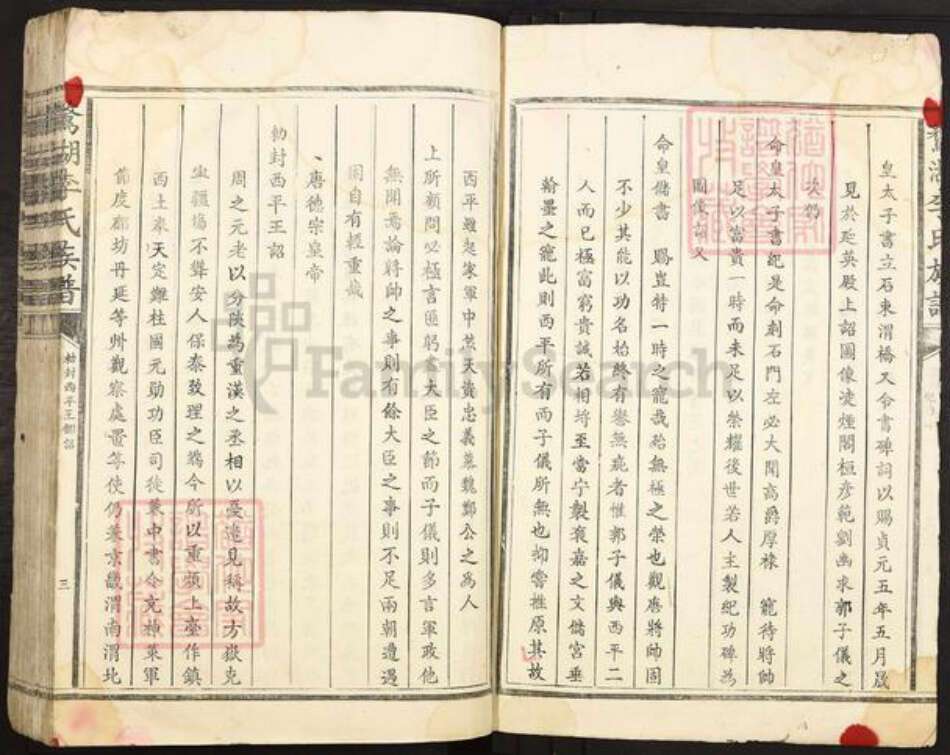 皇太子書立石東渭橋又令書碑詞以賜貞元五年五月晟
見於延英殿上詔圖像凌煙閣桓彥範劉幽求郭子儀之
次仍
命皇太子書紀是命刻石門左必大聞高爵厚祿 寵待將帥
足以富貴一時而未足以榮耀後世若人主製紀功碑為
圖像讚又
命皇儲書 賜豈特一時之寵哉殆無極之榮也觀唐將帥固
不少其能以功名始終有譽無疵者惟郭子儀與西平二
人而已極富窮貴誠若相埒至當宁製褒嘉之文儲宮垂
翰墨之寵此則西平所有而子儀所無也抑嘗推原其故
西平雖起家軍中然天資忠義慕魏鄭公之為人
上所顧問必極言匪躬盡大臣之節而子儀則多言軍政他
無聞焉論將帥之事則有餘大臣之事則不足兩朝遭遇
固自有輕重哉
、唐德宗皇帝
勅封西平王詔
周之元老以分陝為重漢之丞相以憂邊見稱故方嶽克
疆埸不聳安人保泰致理之端今所以重煩上臺作鎮
西土來天定難柱國元勛功臣司徒兼中書令充神策軍
節度鄜坊丹延等州觀察處置等使仍兼京畿渭南渭北
鵞湖李氏族譜
勅封西平王詔
三
FamilySearch